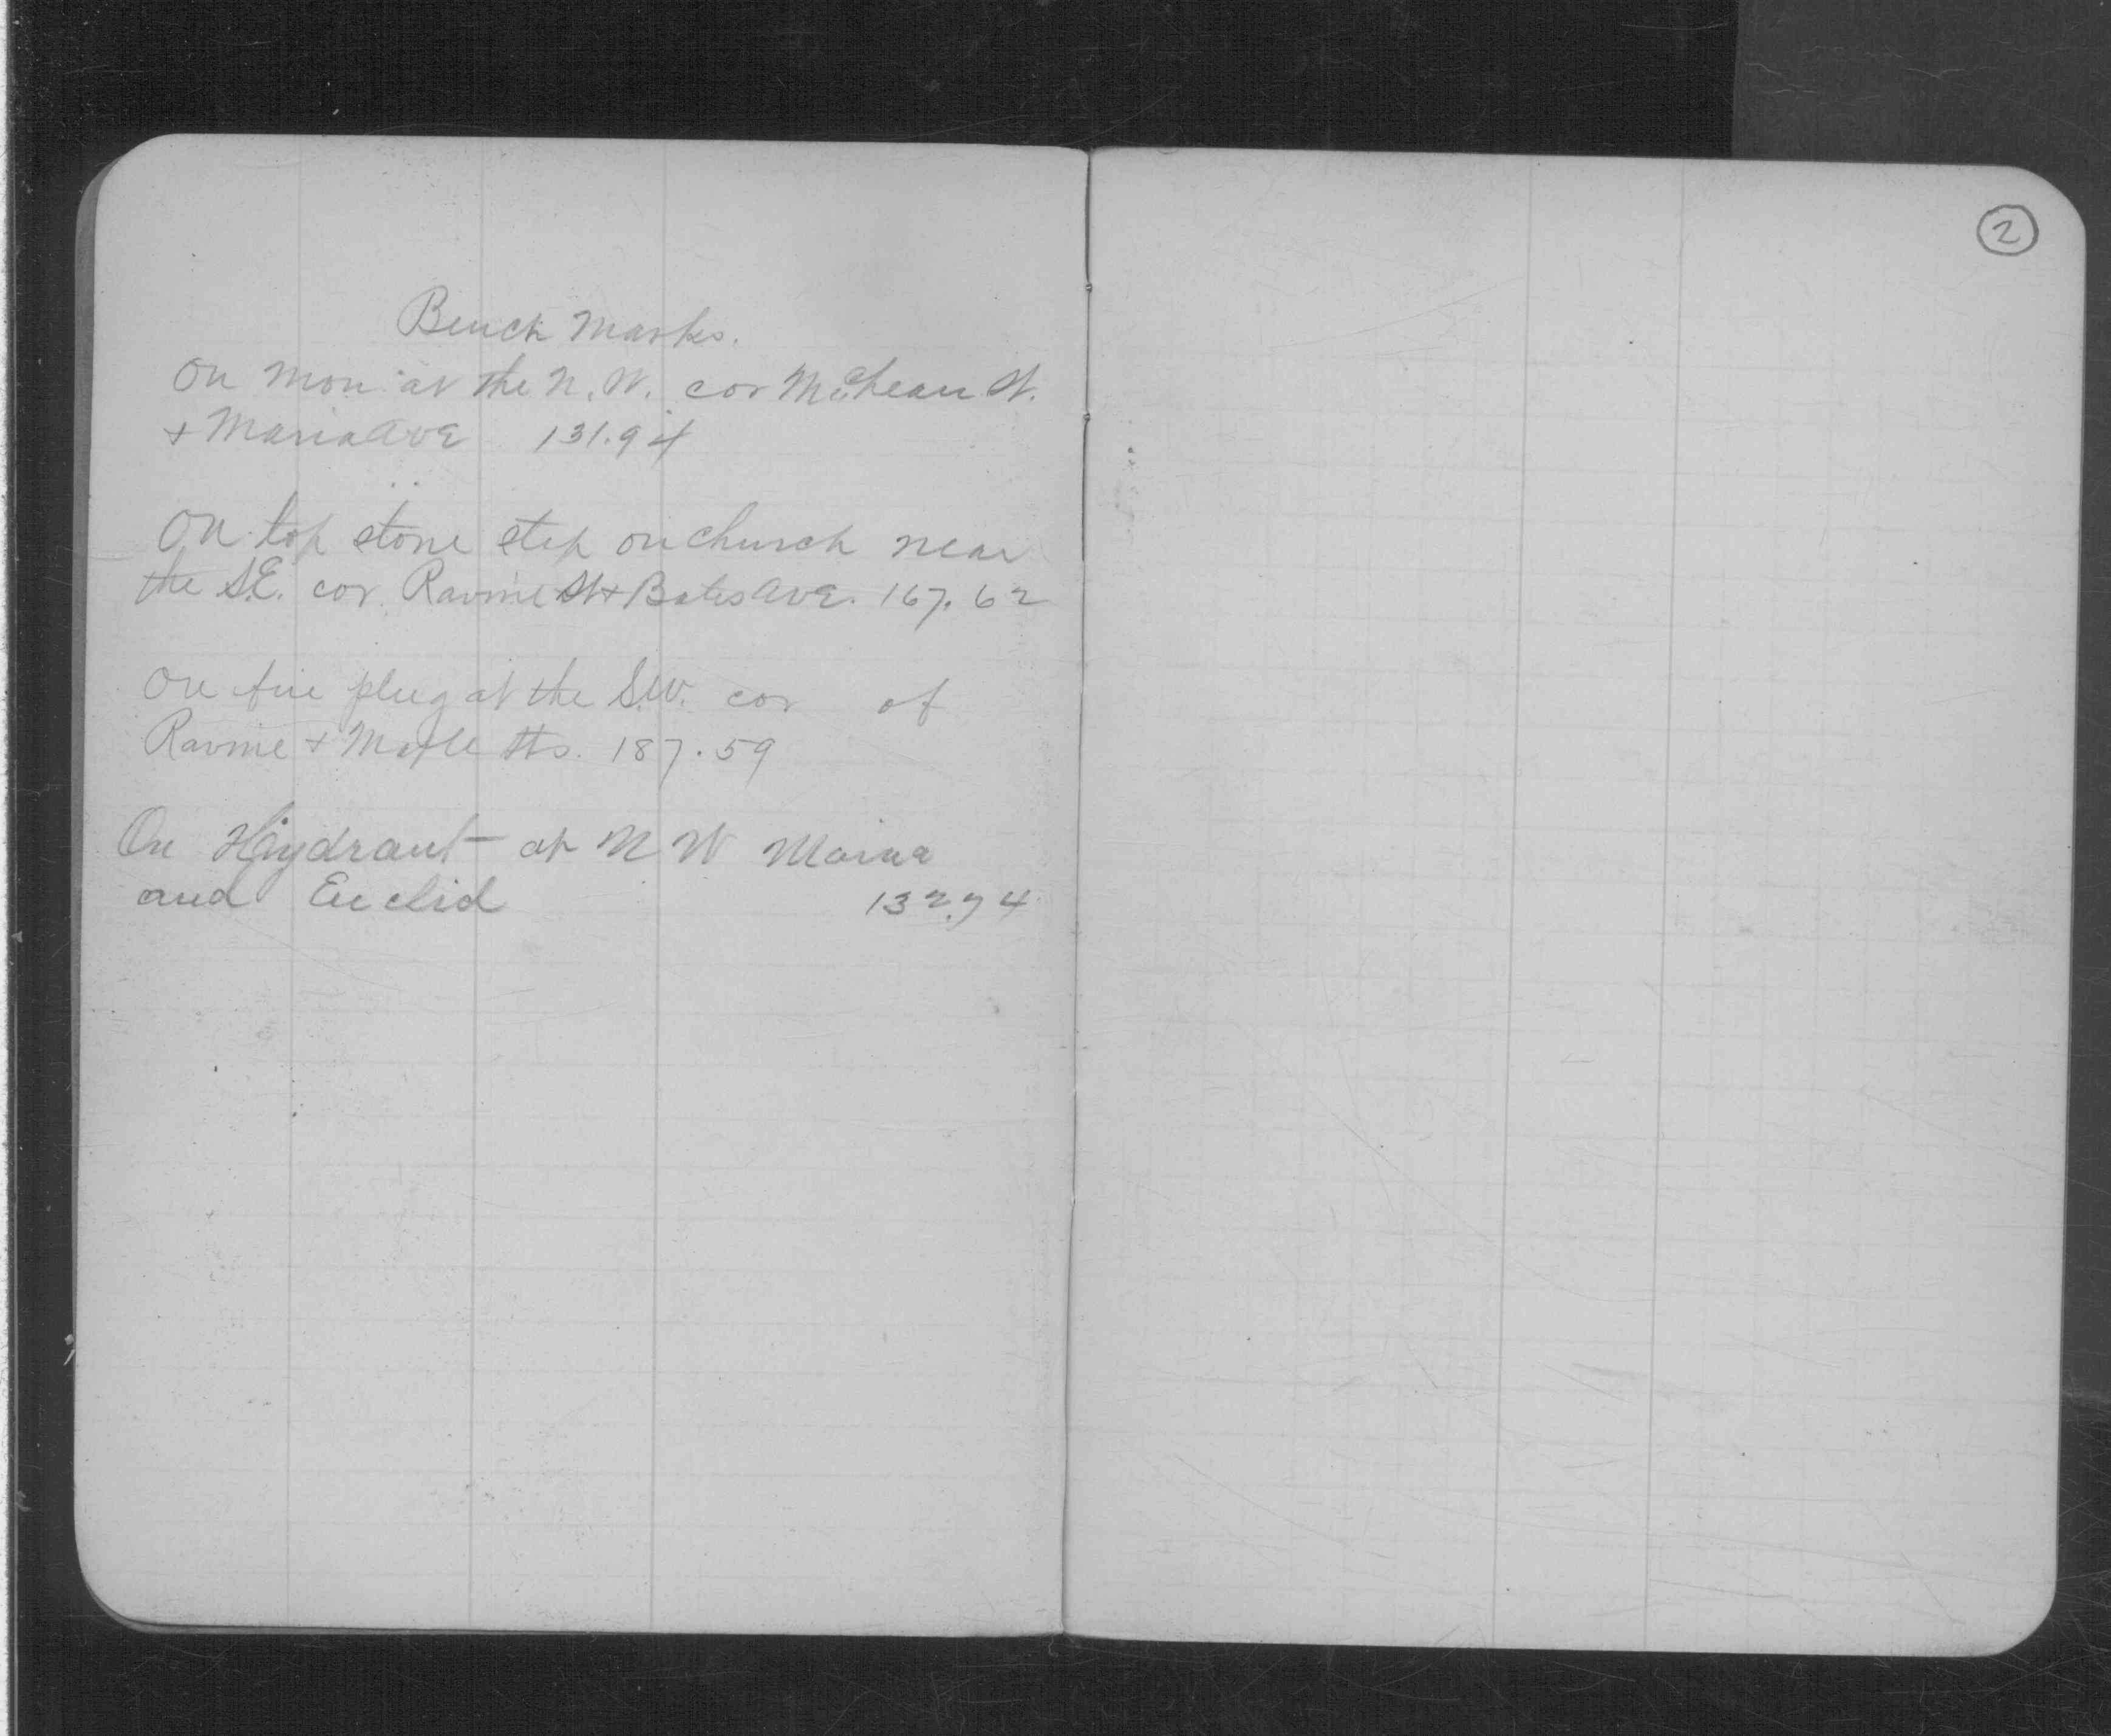 Bench Marks.
On mon. at the N.W. cor McLean St.
+ Maria Ave 131.94
On top stone step on church near
the S.E. cor. Ravine St + Bates Ave. 167.62
On fire plug at the S.W. cor of
Ravine + Maple Sts. 187.59
On Hydrant at N W Maria
and Euclid 132.74
2